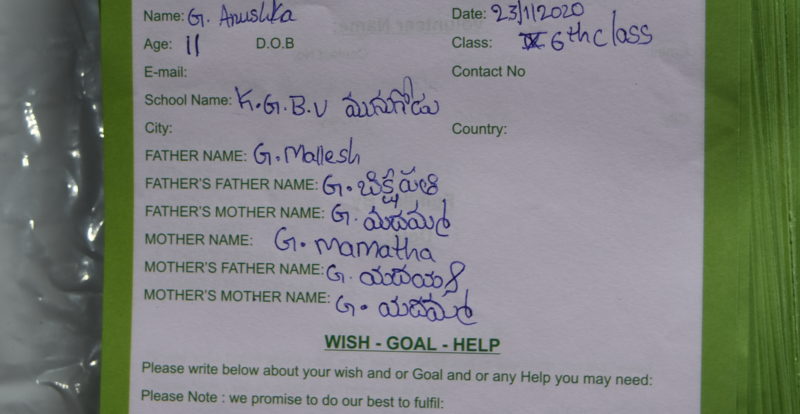 Name: G. Anushka Date: 23/1/2020
Age: 11 D.O.B Class: 6th class
E-mail: Contact No
School Name: K.G.B.V మునుగోడు
City: Country:
FATHER NAME: G. Mallesh
FATHER'S FATHER NAME: G. బిక్షపతి
FATHER'S MOTHER NAME: G.
MOTHER NAME: G. Mamatha
MOTHER'S FATHER NAME: G.
MOTHER'S MOTHER NAME: G.
WISH - GOAL - HELP
Please write below about your wish and or Goal and or any Help you may need:
Please Note : we promise to do our best to fulfil: